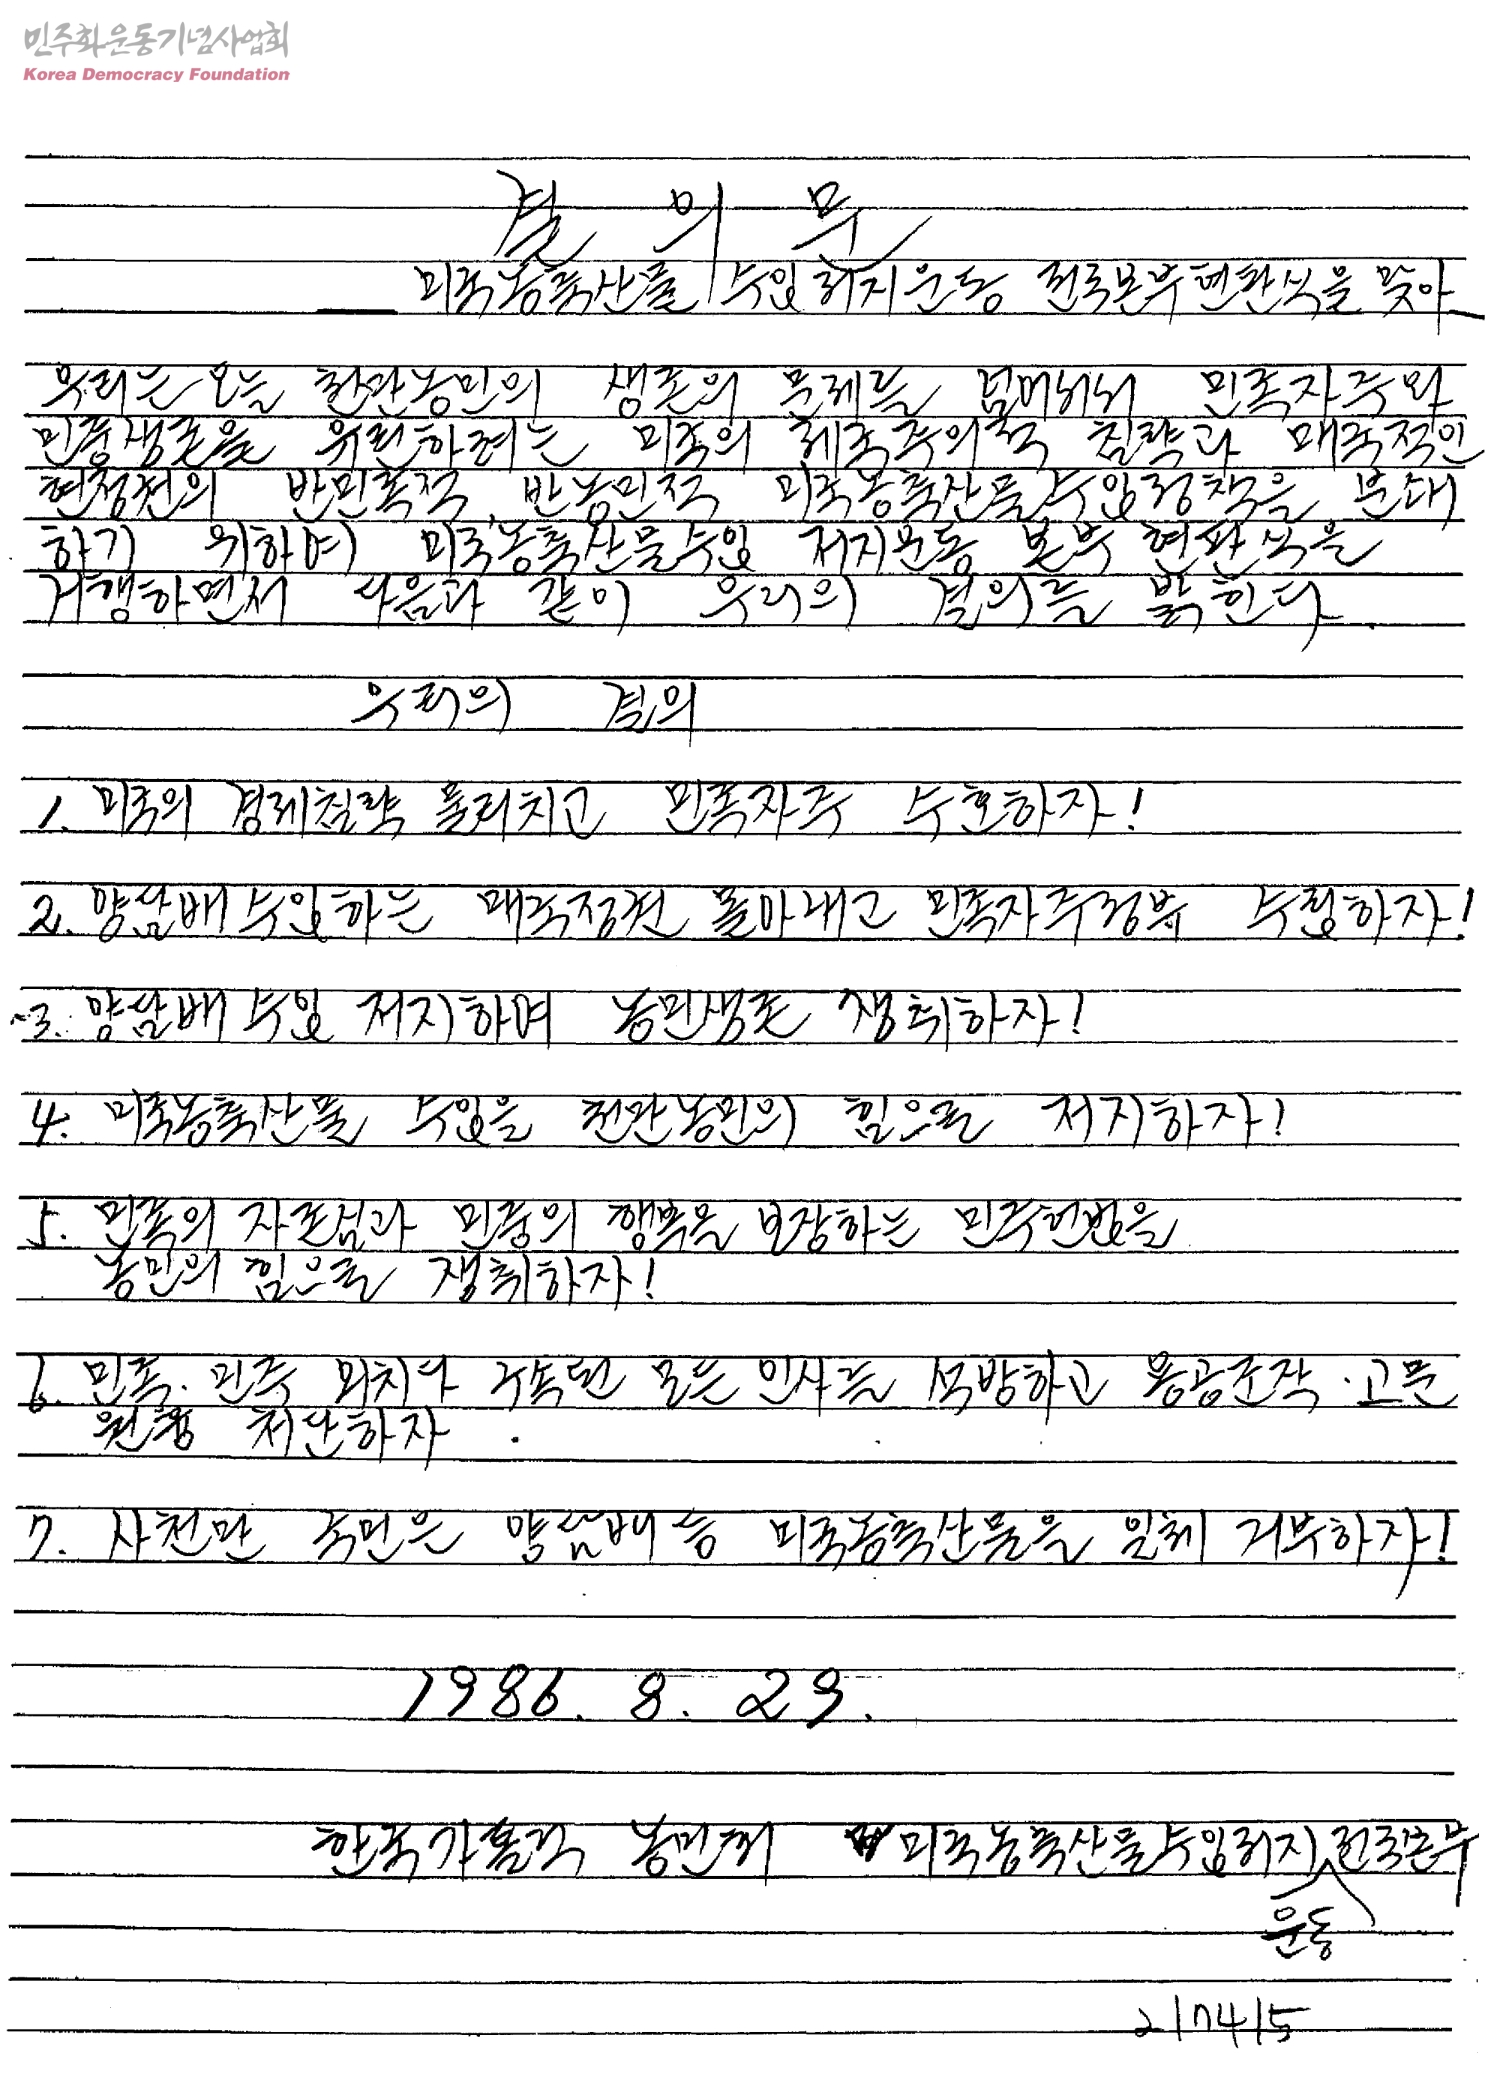 민주화운동기념사업회
Korea Democracy Foundation
결 의 문
미국농축산물 수입 저지운동 전국본부현판식을 맞아
우리는 오늘 천만농민의 생존의 문제를 넘어서서 민족자주와
민중생존을 위협하려는 미국의 제국주의적 침략과 매국적인
현정권의 반민족적, 반농민적 미국농축산물수입정책을 분쇄
하기 위하여 미국농축산물수입 저지운동 본부 현판식을
거행하면서 다음과 같이 우리의 결의를 밝힌다.
우리의 결의
1. 미국의 경제침략 물리치고 민족자주 수호하자!
2. 양담배수입하는 매국정권 몰아내고 민족자주정부 수립하자!
3. 양담배 수입 저지하며 농민생존 쟁취하자!
4. 미국농축산물 수입을 천만농민의 힘으로 저지하자!
5. 민족의 자존심과 민중의 행복을 보장하는 민주헌법을
농민의 힘으로 쟁취하자!
6. 민족·민주 외치다 구속된 모든 인사를 석방하고 용공조작·고문
원흉 처단하자.
7. 사천만 국민은 양담배 등 미국농축산물을 일체 거부하자!
1986. 8. 29.
한국가톨릭 농민회 미국농축산물수입저지 전국본부
운동
217415